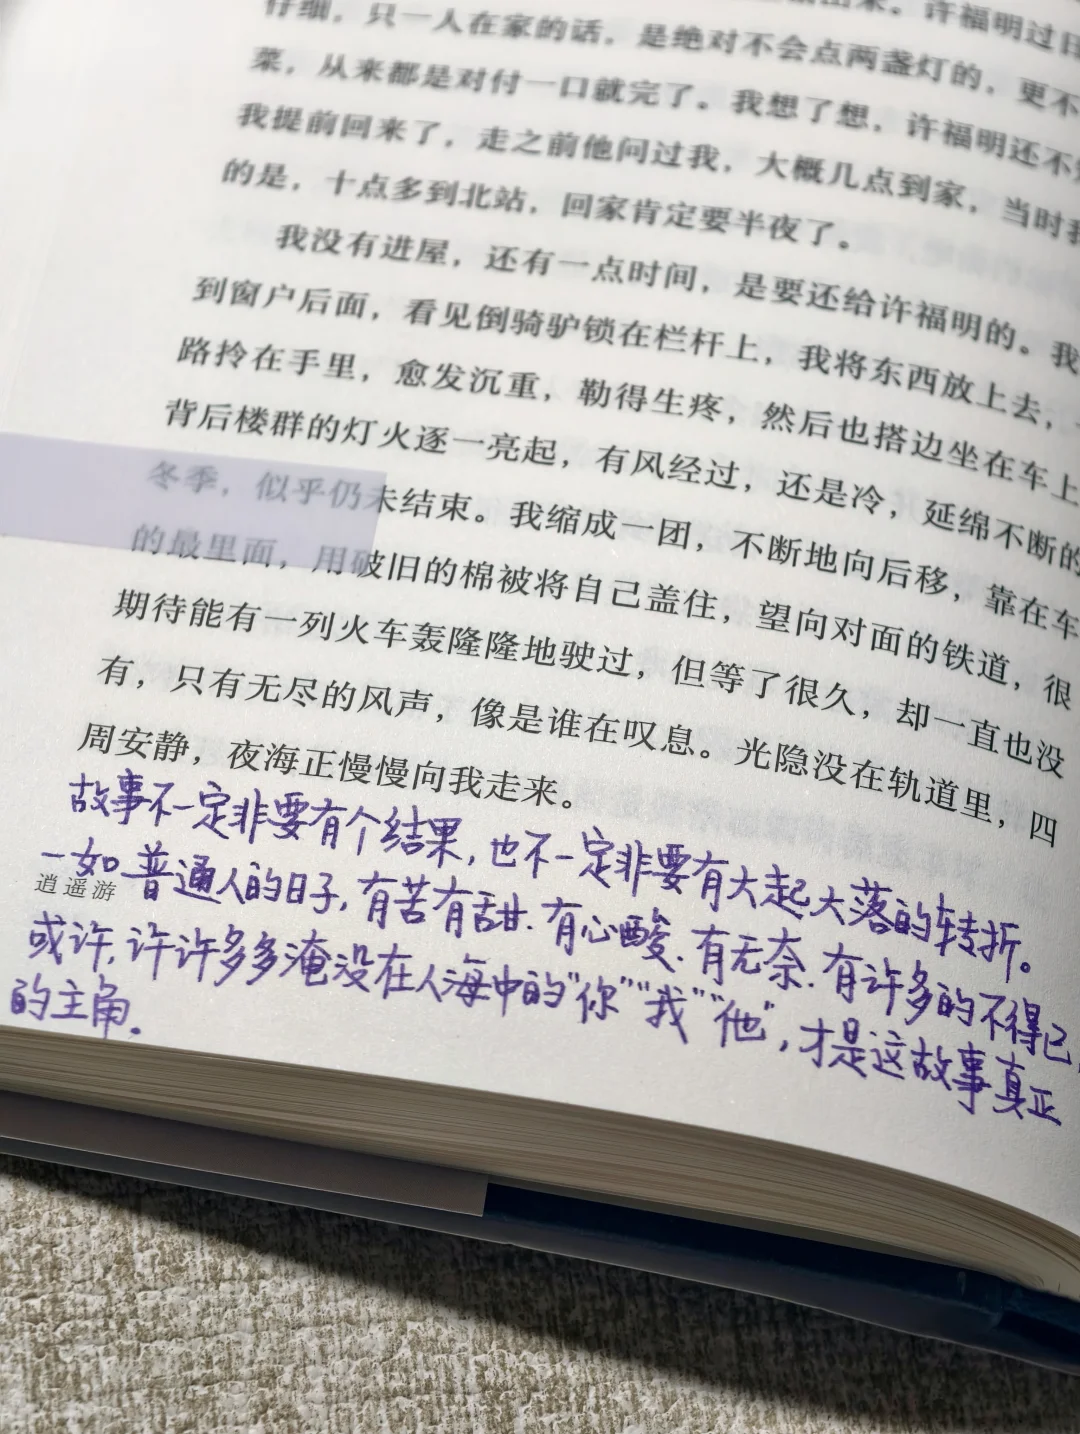 仔细，只一人在家的话，是绝对不会点两盏灯的，更不
菜，从来都是对付一口就完了。我想了想，许福明还不
我提前回来了，走之前他问过我，大概几点到家，当时我
的是，十点多到北站，回家肯定要半夜了。
我没有进屋，还有一点时间，是要还给许福明的。我
到窗户后面，看见倒骑驴锁在栏杆上，我将东西放上去，
路拎在手里，愈发沉重，勒得生疼，然后也搭边坐在车上
背后楼群的灯火逐一亮起，有风经过，还是冷，延绵不断的
冬季，似乎仍未结束。我缩成一团，不断地向后移，靠在车
的最里面，用破旧的棉被将自己盖住，望向对面的铁道，很
期待能有一列火车轰隆隆地驶过，但等了很久，却一直也没
有，只有无尽的风声，像是谁在叹息。光隐没在轨道里，四
周安静，夜海正慢慢向我走来。
故事不一定非要有个结果，也不一定非要有大起大落的转折。
一如普通人的日子，有苦有甜、有心酸、有无奈、有许多的不得已，
逍遥游
或许，许许多多淹没在人海中的“你”“我”“他”，才是这故事真正
的主角。